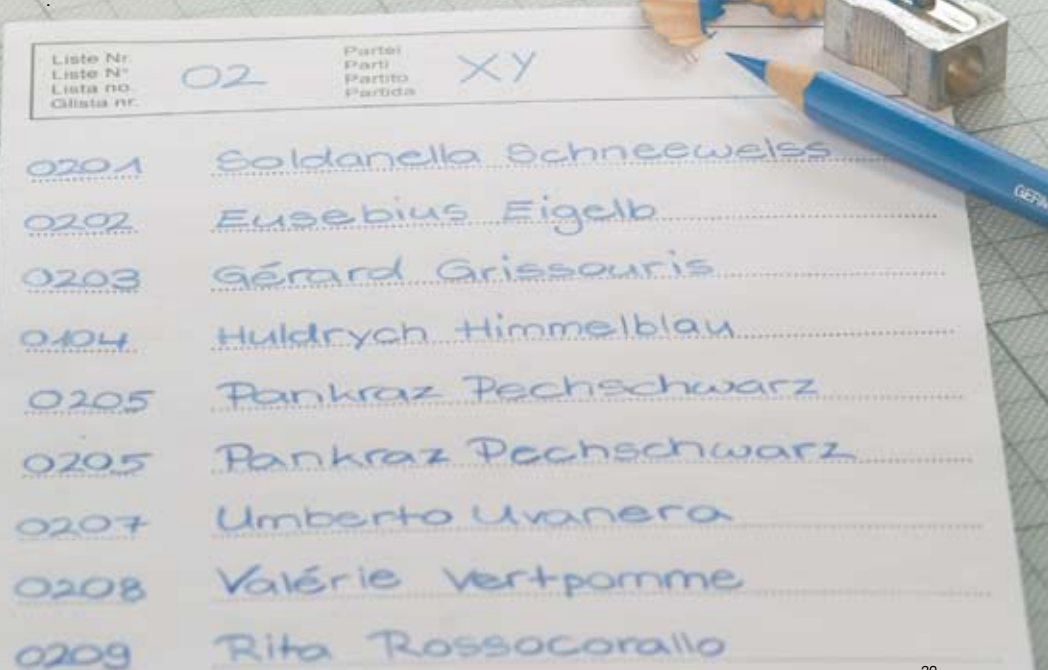 Liste Nr.
Liste N°
Lista no.
Glista nr.
02
Partei
Parti
Partito
Partida
XY
0201 Soldanella Schneeweiss
0202 Eusebius Eigelb
0203 Gérard Grissouris
0104 Huldrych Himmelblau
0205 Pankraz Pechschwarz
0205 Pankraz Pechschwarz
0207 Umberto Uvanera
0208 Valérie Vertpomme
0209 Rita Rossocorallo